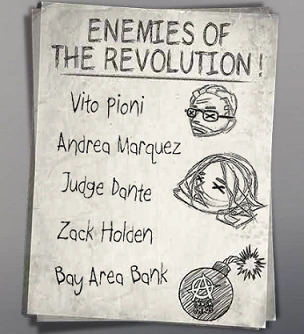 ENEMIES OF
THE REVOLUTION!
Vito Pioni
Andrea Marquez
Judge Dante
Zack Holden
Bay Area Bank